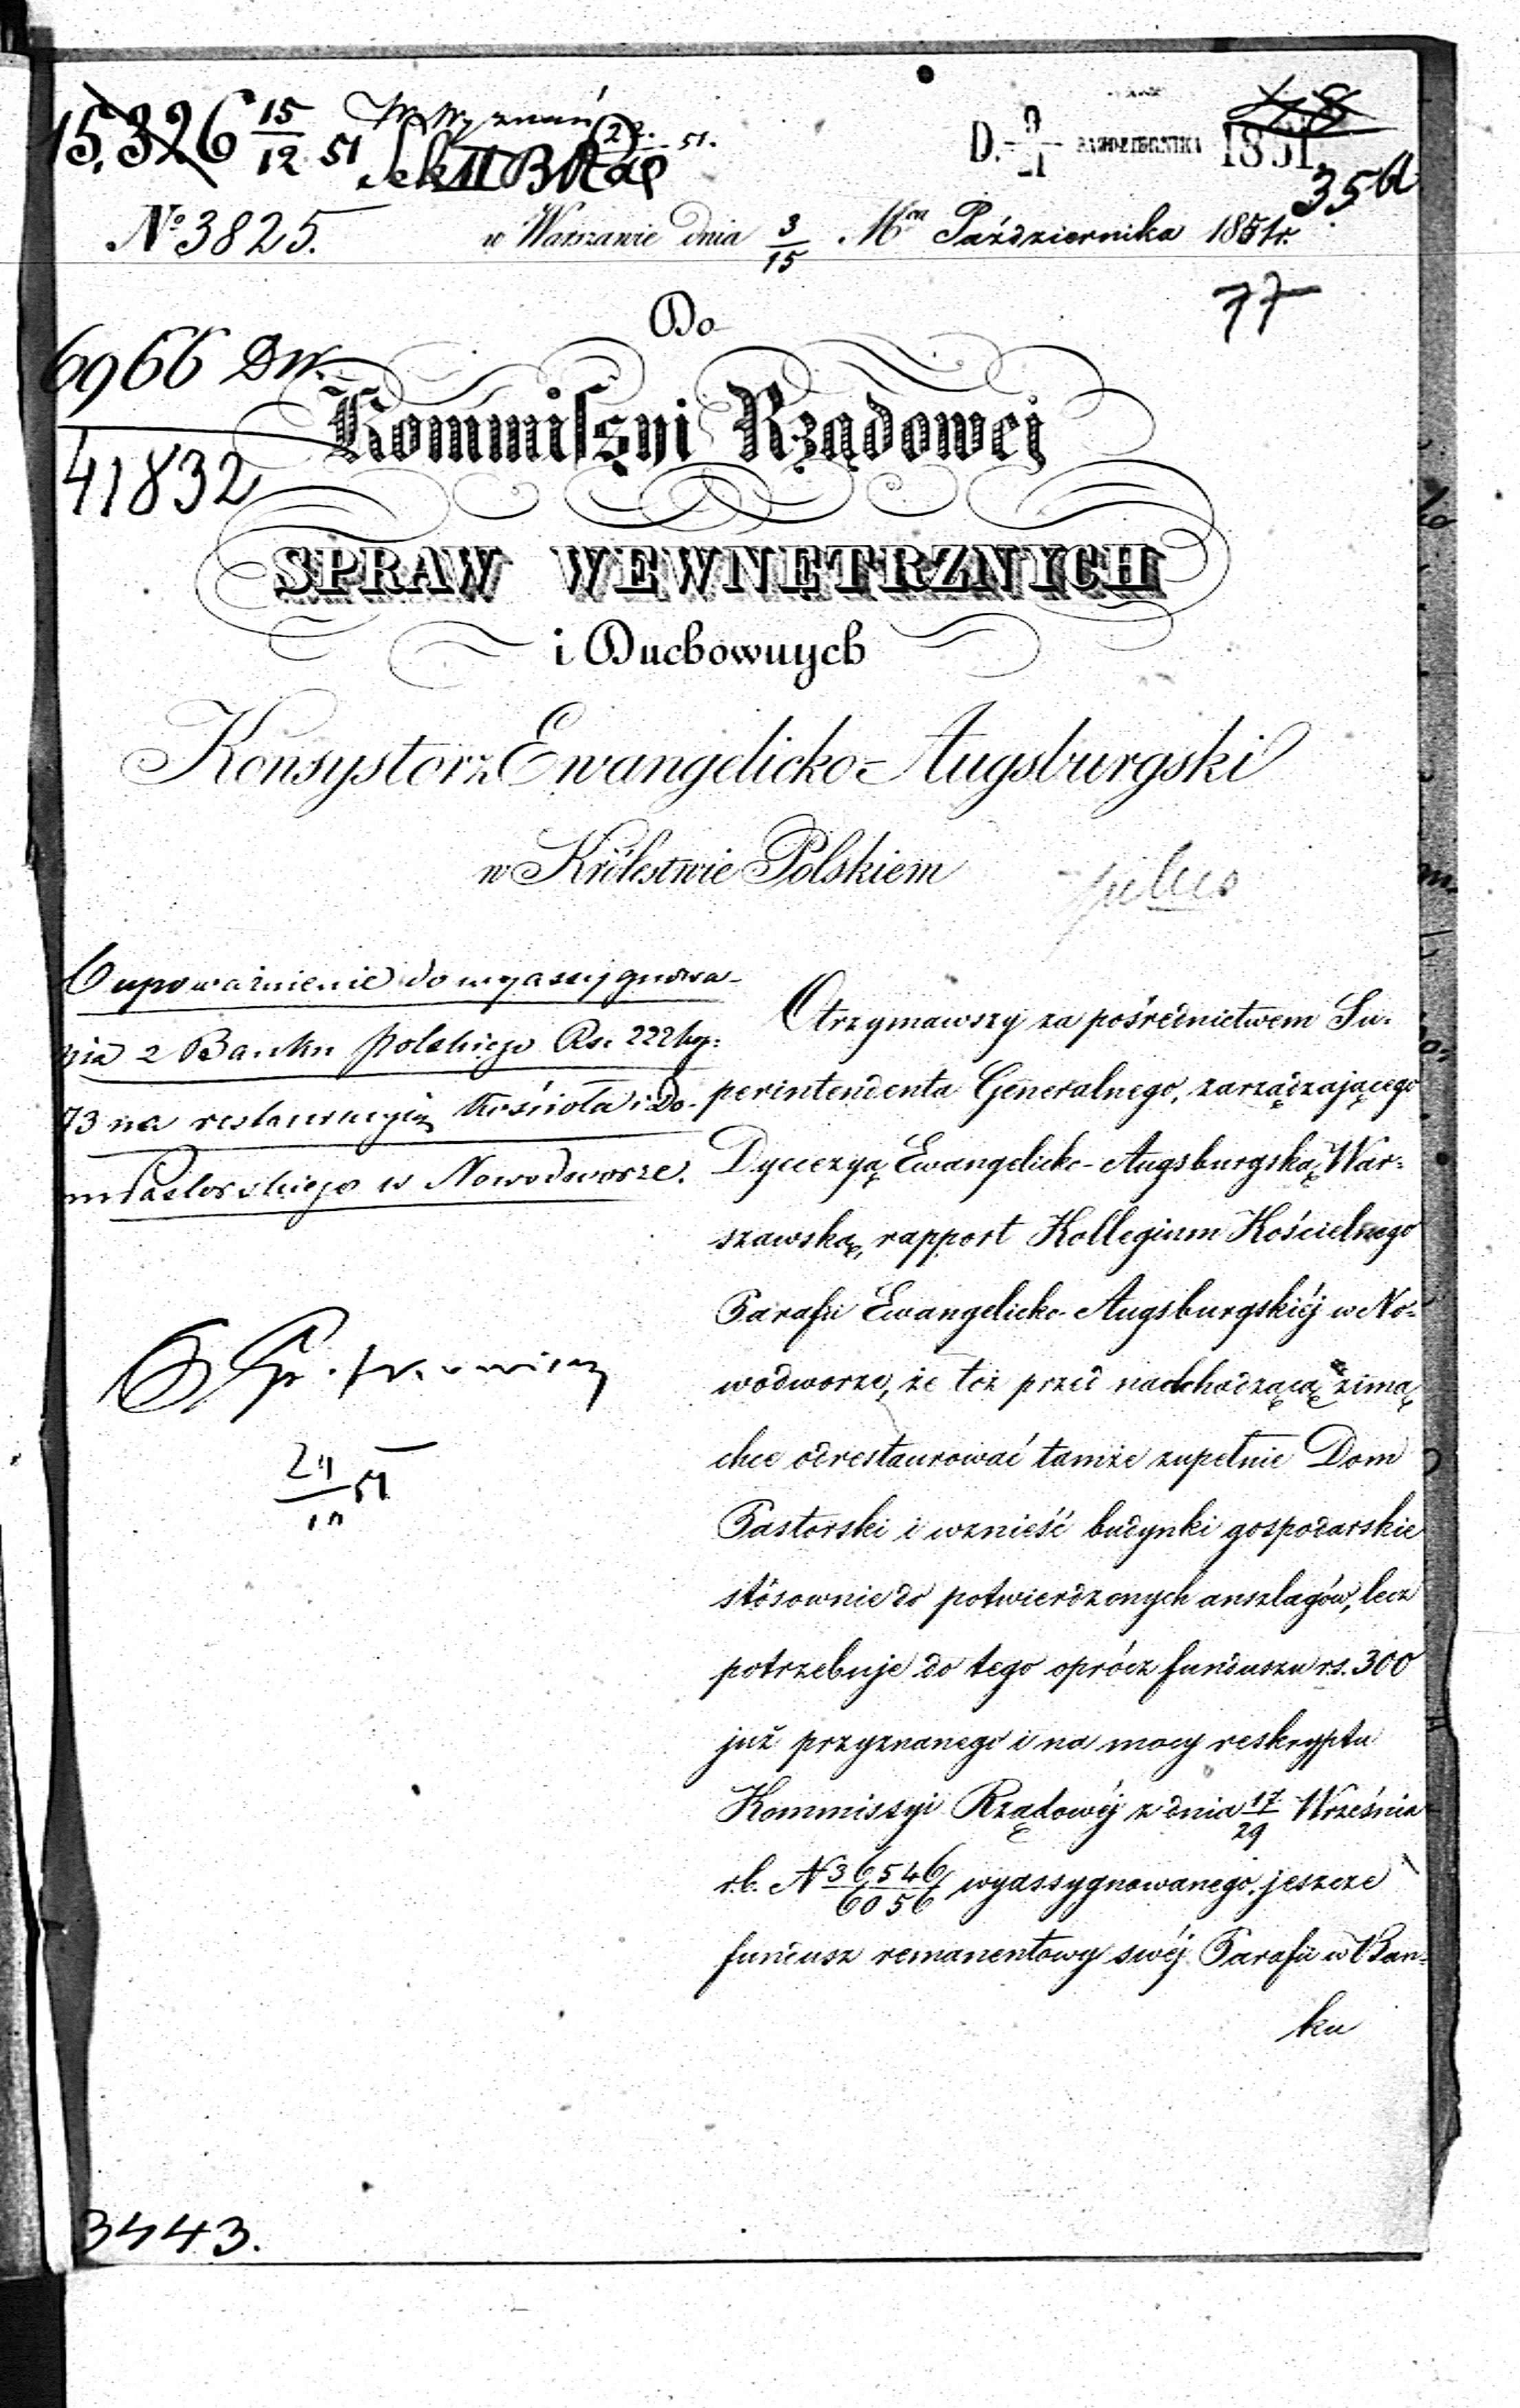 15,326 15/12 51
W. Wyznań
Sek II B
51.
D. 9/21 PAŹDZIERNIKA 1851.
35 a
№ 3825.
w Warszawie dnia 3/15 Mca Października 1851r.
77
Do
6966 DW.
41832
Kommissyi Rządowej
SPRAW WEWNĘTRZNYCH
i Duchownych
Konsystorz Ewangelicko-Augsburgski
w Królestwie Polskiem
O upoważnienie do wyassygnowa-
nia z Banku Polskiego Rs. 222 kop:
73 na restauracyią Kościoła i Do-
mu Pastorskiego w Nowodworze.
Otrzymawszy za pośrednictwem Su-
perintendenta Generalnego, zarządzającego
Dyecezyą Ewangelicko-Augsburgską War-
szawską, rapport Kollegium Kościelnego
Parafii Ewangelicko-Augsburgskiéj w No-
wodworze, że toż przed nadchodzącą zimą
chce odrestaurować tamże zupełnie Dom
Pastorski i wznieść budynki gospodarskie
stósownie do potwierdzonych anszlagów, lecz
potrzebuje do tego oprócz funduszu rs. 300
już przyznanego i na mocy reskryptu
Kommissyi Rządowéj z dnia 17/29 Września
r.b. N 36546/6056 wyassygnowanego, jeszcze
fundusz remanentowy swéj Parafii w Ban-
ku
3443.